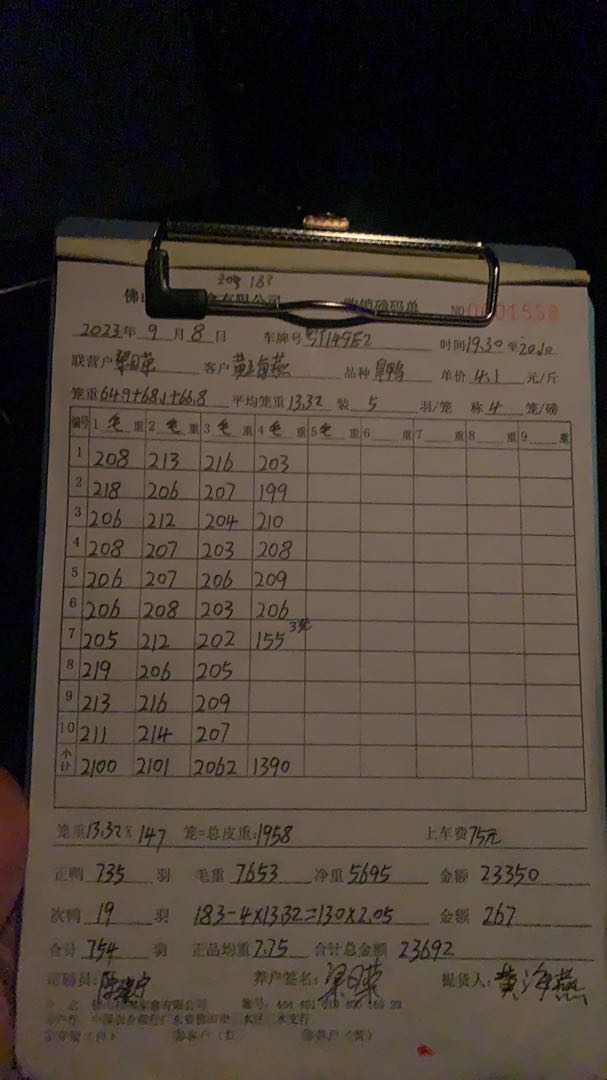 204 183
佛山 有限公司 购销磅码单 NO 0001558
2023年 9 月 8 日 车牌号 51149E2 时间 19.30 至 20.10
联营户 梁日荣 客户 黄海燕 品种 单价 4.1 元/斤
笼重 64.9+68.1+66.8 平均笼重 13.32 装 5 羽/笼 称 4 笼/磅
编号 1 毛 重 2 毛 重 3 毛 重 4 毛 重 5 毛 重 6 重 7 重 8 重 9 重
1 208 213 216 203
2 218 206 207 199
3 206 212 204 210
4 208 207 203 208
5 206 207 206 209
6 206 208 203 206
7 205 212 202 155 3笼
8 219 206 205
9 213 216 209
10 211 214 207
小计 2100 2101 2062 1390
笼重 13.32 × 147 笼=总皮重: 1958 上车费 75元
正鸭 735 羽 毛重 7653 净重 5695 金额 23350
次鸭 19 羽 183-4×13.32=130×2.05 金额 267
合计 754 羽 正品均重 7.75 合计总金额 23692
司磅员: 养户签名: 梁日荣 提货人: 黄海燕